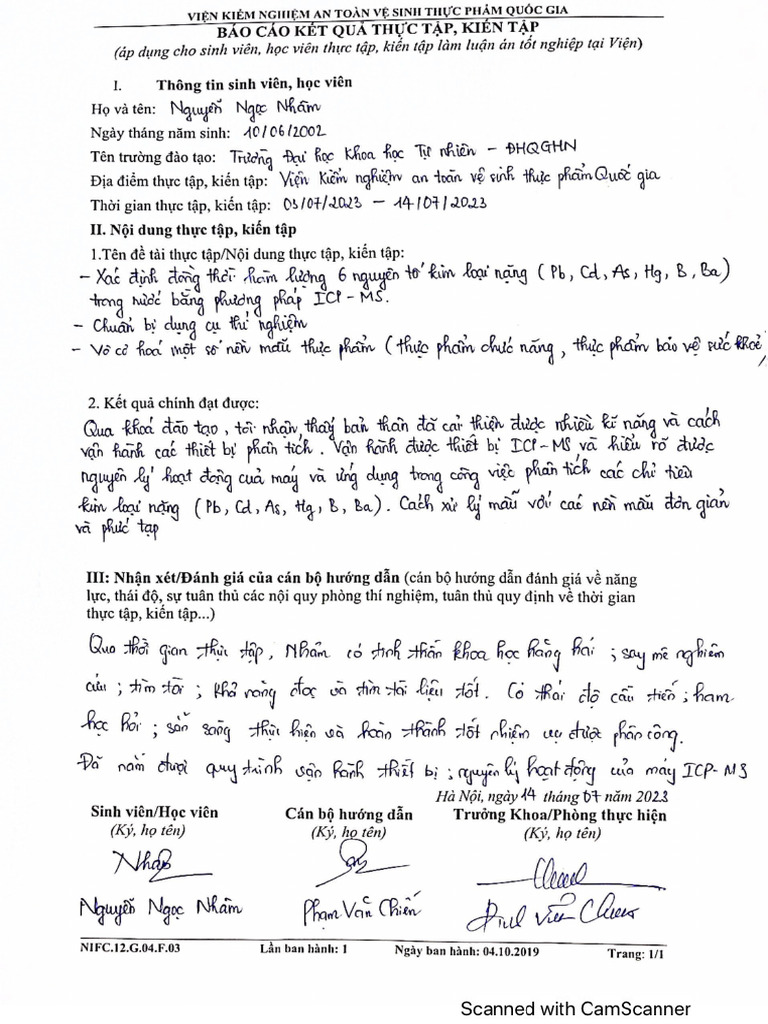 VIỆN KIỂM NGHIỆM AN TOÀN VỆ SINH THỰC PHẨM QUỐC GIA
BÁO CÁO KẾT QUẢ THỰC TẬP, KIẾN TẬP
(áp dụng cho sinh viên, học viên thực tập, kiến tập làm luận án tốt nghiệp tại Viện)
I. Thông tin sinh viên, học viên
Họ và tên: Nguyễn Ngọc Nhâm
Ngày tháng năm sinh: 10/06/2002
Tên trường đào tạo: Trường Đại học Khoa học Tự nhiên - ĐHQGHN
Địa điểm thực tập, kiến tập: Viện Kiểm nghiệm an toàn vệ sinh thực phẩm Quốc gia
Thời gian thực tập, kiến tập: 03/07/2023 - 14/07/2023
II. Nội dung thực tập, kiến tập
1.Tên đề tài thực tập/Nội dung thực tập, kiến tập:
- Xác định đồng thời hàm lượng 6 nguyên tố kim loại nặng (Pb, Cd, As, Hg, B, Ba)
trong nước bằng phương pháp ICP-MS.
- Chuẩn bị dụng cụ thí nghiệm
- Vô cơ hoá một số nền mẫu thực phẩm (thực phẩm chức năng, thực phẩm bảo vệ sức khoẻ)
2. Kết quả chính đạt được:
Qua khoá đào tạo, tôi nhận thấy bản thân đã cải thiện được nhiều kĩ năng và cách
vận hành các thiết bị phân tích. Vận hành được thiết bị ICP-MS và hiểu rõ được
nguyên lý hoạt động của máy và ứng dụng trong công việc phân tích các chỉ tiêu
kim loại nặng (Pb, Cd, As, Hg, B, Ba). Cách xử lý mẫu với các nền mẫu đơn giản
và phức tạp
III: Nhận xét/Đánh giá của cán bộ hướng dẫn (cán bộ hướng dẫn đánh giá về năng
lực, thái độ, sự tuân thủ các nội quy phòng thí nghiệm, tuân thủ quy định về thời gian
thực tập, kiến tập...)
Qua thời gian thực tập, Nhâm có tinh thần khoa học hăng hái; say mê nghiêm
cứu; tìm tòi; khả năng đọc và tìm tài liệu tốt. Có thái độ cầu tiến; ham
học hỏi; sẵn sàng thực hiện và hoàn thành tốt nhiệm vụ được phân công.
Đã nắm được quy trình vận hành thiết bị; nguyên lý hoạt động của máy ICP-MS
Hà Nội, ngày 14 tháng 07 năm 2023
Sinh viên/Học viên Cán bộ hướng dẫn Trưởng Khoa/Phòng thực hiện
(Ký, họ tên) (Ký, họ tên) (Ký, họ tên)
Nhâm
Nguyễn Ngọc Nhâm Phạm Văn Chiến Đinh Viết Chiến
NIFC.12.G.04.F.03 Lần ban hành: 1 Ngày ban hành: 04.10.2019 Trang: 1/1
Scanned with CamScanner